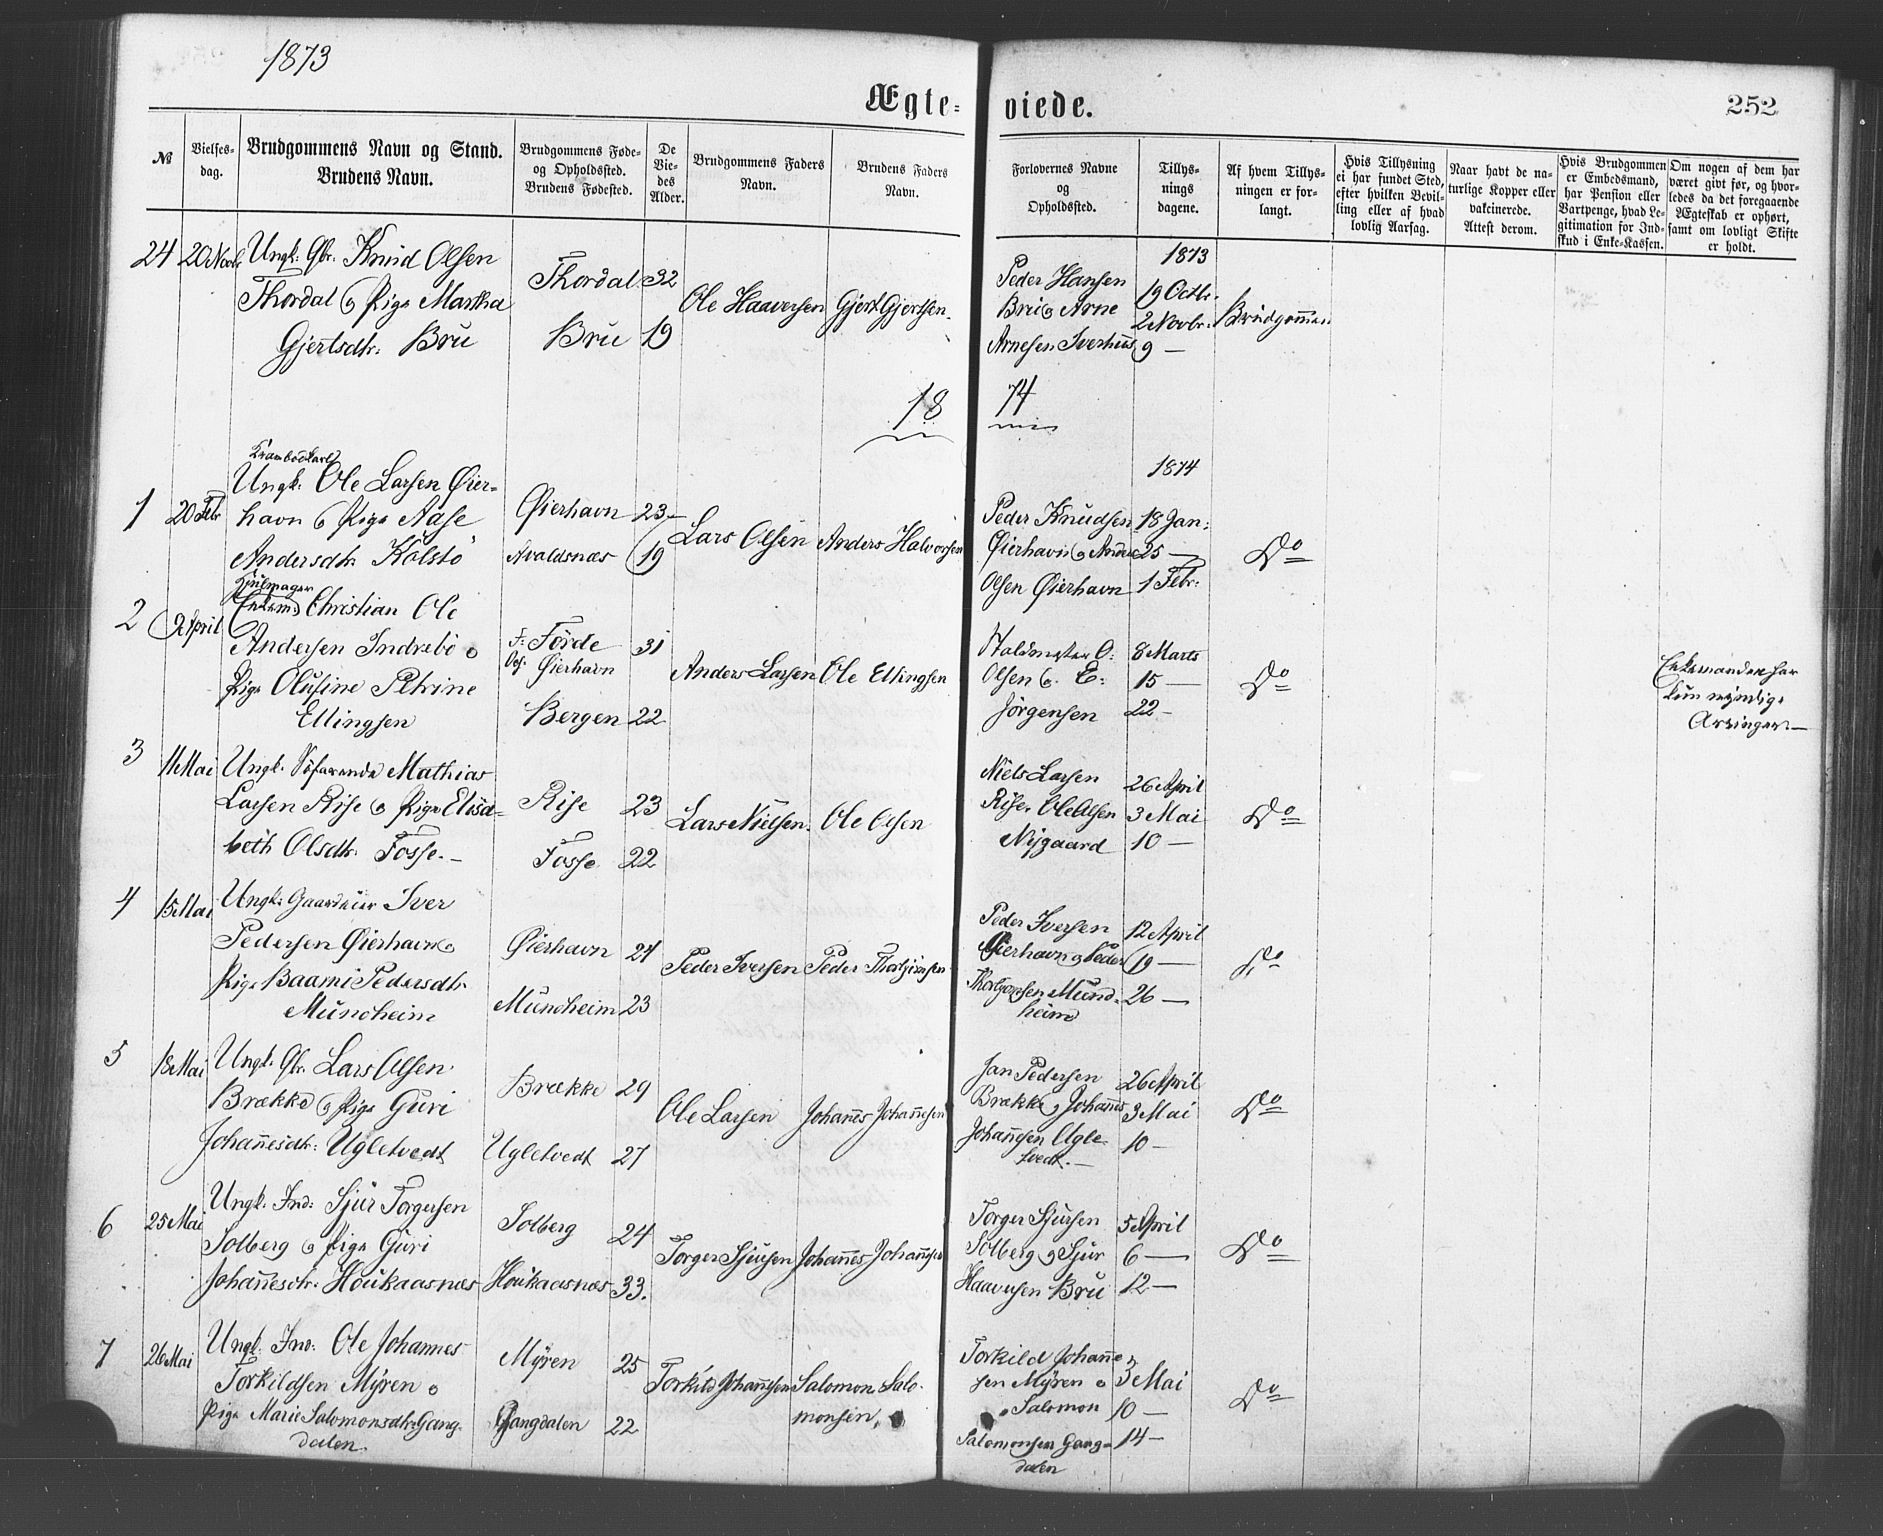 1873
Ægte-
viede.
252
№
Vielses-
dag.
Brudgommens Navn og Stand.
Brudens Navn.
Brudgommens Føde-
og Opholdssted.
Brudens Fødested.
De
Vie-
des
Alder.
Brudgommens Faders
Navn.
Brudens Faders
Navn.
Forlovernes Navne
og
Opholdssted.
Tillys-
nings
dagene.
Af hvem Tillys-
ningen er for-
langt.
Hvis Tillysning
ei har fundet Sted,
efter hvilken Bevil-
ling eller af hvad
lovlig Aarsag.
Naar havt de na-
turlige Kopper eller
vakcinerede.
Attest derom.
Hvis Brudgommen
er Embedsmand,
har Pension eller
Vartpenge, hvad Le-
gitimation for Ind-
skud i Enke-Kassen.
Om nogen af dem har
været givt før, og hvor-
ledes da det foregaaende
Ægteskab er ophørt,
samt om lovligt Skifte
er holdt.
24
20 Novbr.
Ungk. Gbr. Knud Olsen
Thordal og Pige Martha
Gjertsdtr. Bru
Thordal 32
Bru 19
Ole Haaversen
Gjert Gjertsen.
Peder Hansen
Bru og Arne
Arnesen Iverhuus
1873
19 Octbr.
2 Novbr.
9 —
Brudgommen
18
74
1
20 Febr
Krambodkarl
Ungk. Ole Larsen Øier-
havn og Pige Aase
Andersdtr. Kolstö
Øierhavn 23
Avaldsnæs 19
Lars Olsen
Anders Halvorsen
Peder Knudsen
Øierhavn og Anders
Olsen Øierhavn
1874
18 Jan:
25 —
1 Febr:
Do
2
9 April
Hjulmager
Enkem. Christian Ole
Andersen Indrebö o
Pige Olufine Petrine
Ellingsen
F: Förde
Ops. Øierhavn
31
Bergen 22
Anders Larsen
Ole Ellingsen
Holdmester O:
Olsen og E:
Jörgensen
8 Marts
15 —
22 —
Do
Enkemanden har
kun myndige
Arvinger. —
3
11 Mai
Ungk. Söfarende Mathias
Larsen Rise og Pige Elisa-
beth Olsdtr. Fosse. —
Rise 23
Fosse 22
Lars Nielsen.
Ole Olsen
Niels Larsen
Rise, Ole Olsen
Nygaard
26 April
3 Mai
10 —
Do
4
15 Mai
Ungk. Gaardeier Iver
Pedersen Øierhavn o
Pige Baami Pedersdtr.
Mundheim
Øierhavn 24
Mundheim 23
Peder Iversen
Peder Thorgiersen
Peder Iversen
Øierhavn og Peder
Thorgiersen Mund-
heim
12 April
19 —
26 —
Do
5
18 Mai
Ungk. Gbr. Lars Olsen
Brække og Pige Guri
Johannesdtr: Ugletvedt
Brække 29
Ugletvedt 27
Ole Larsen
Johannes Johannesen
Jan Pedersen
Brække og Johannes
Johannesen Ugle-
tvedt. —
26 April
3 Mai
10 —
Do
6
25 Mai
Ungk. Ind: Sjur Torgersen
Solberg og Pige Guri
Johannesdtr. Houkaasnæs
Solberg 24
Houkaasnæs 33.
Torger Sjursen
Johannes Johannesen
Torger Sjursen
Solberg og Sjur
Haaversen Bru
5 April
6 —
12 —
Do
7
26 Mai
Ungk. Ind: Ole Johannes
Torkildsen Myren o
Pige Marie Salomonsdtr. Gang-
dalen.
Myren 25
Gangdalen 22
Torkild Johannesen
Salomon Salo-
monsen.
Torkild Johanne
sen Myren o
Salomon
Salomonsen Gang-
dalen
3 Mai
10 —
14 —
Do